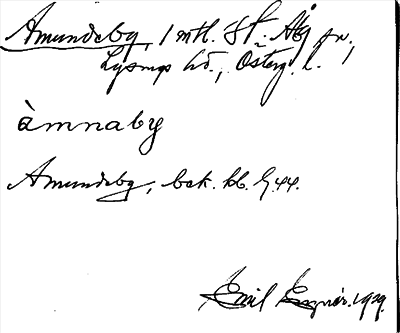 Amundeby, 1 mtl. St. Åby sn,
Lysings hd., Österg. l.
àmnaby
Amundeby, bek. kb.
Emil 1929.